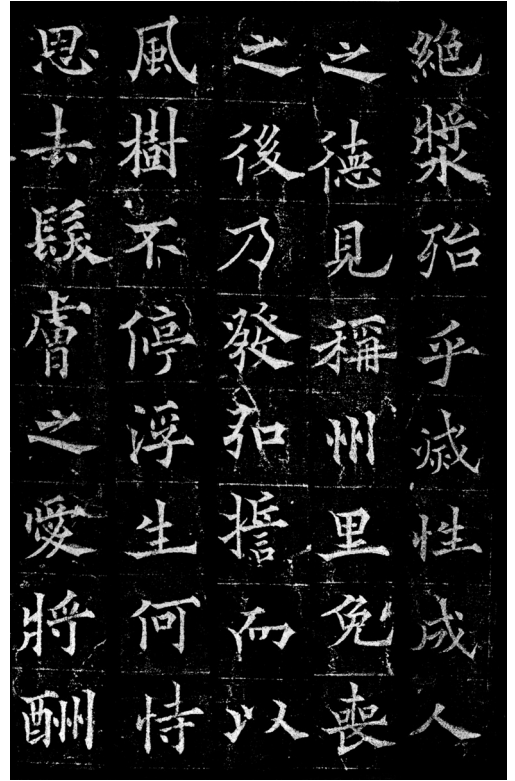 絶漿殆乎滅性成人
之德見稱州里免喪
之後乃發弘誓而以
風樹不停浮生何恃
思去髮膚之愛將酬